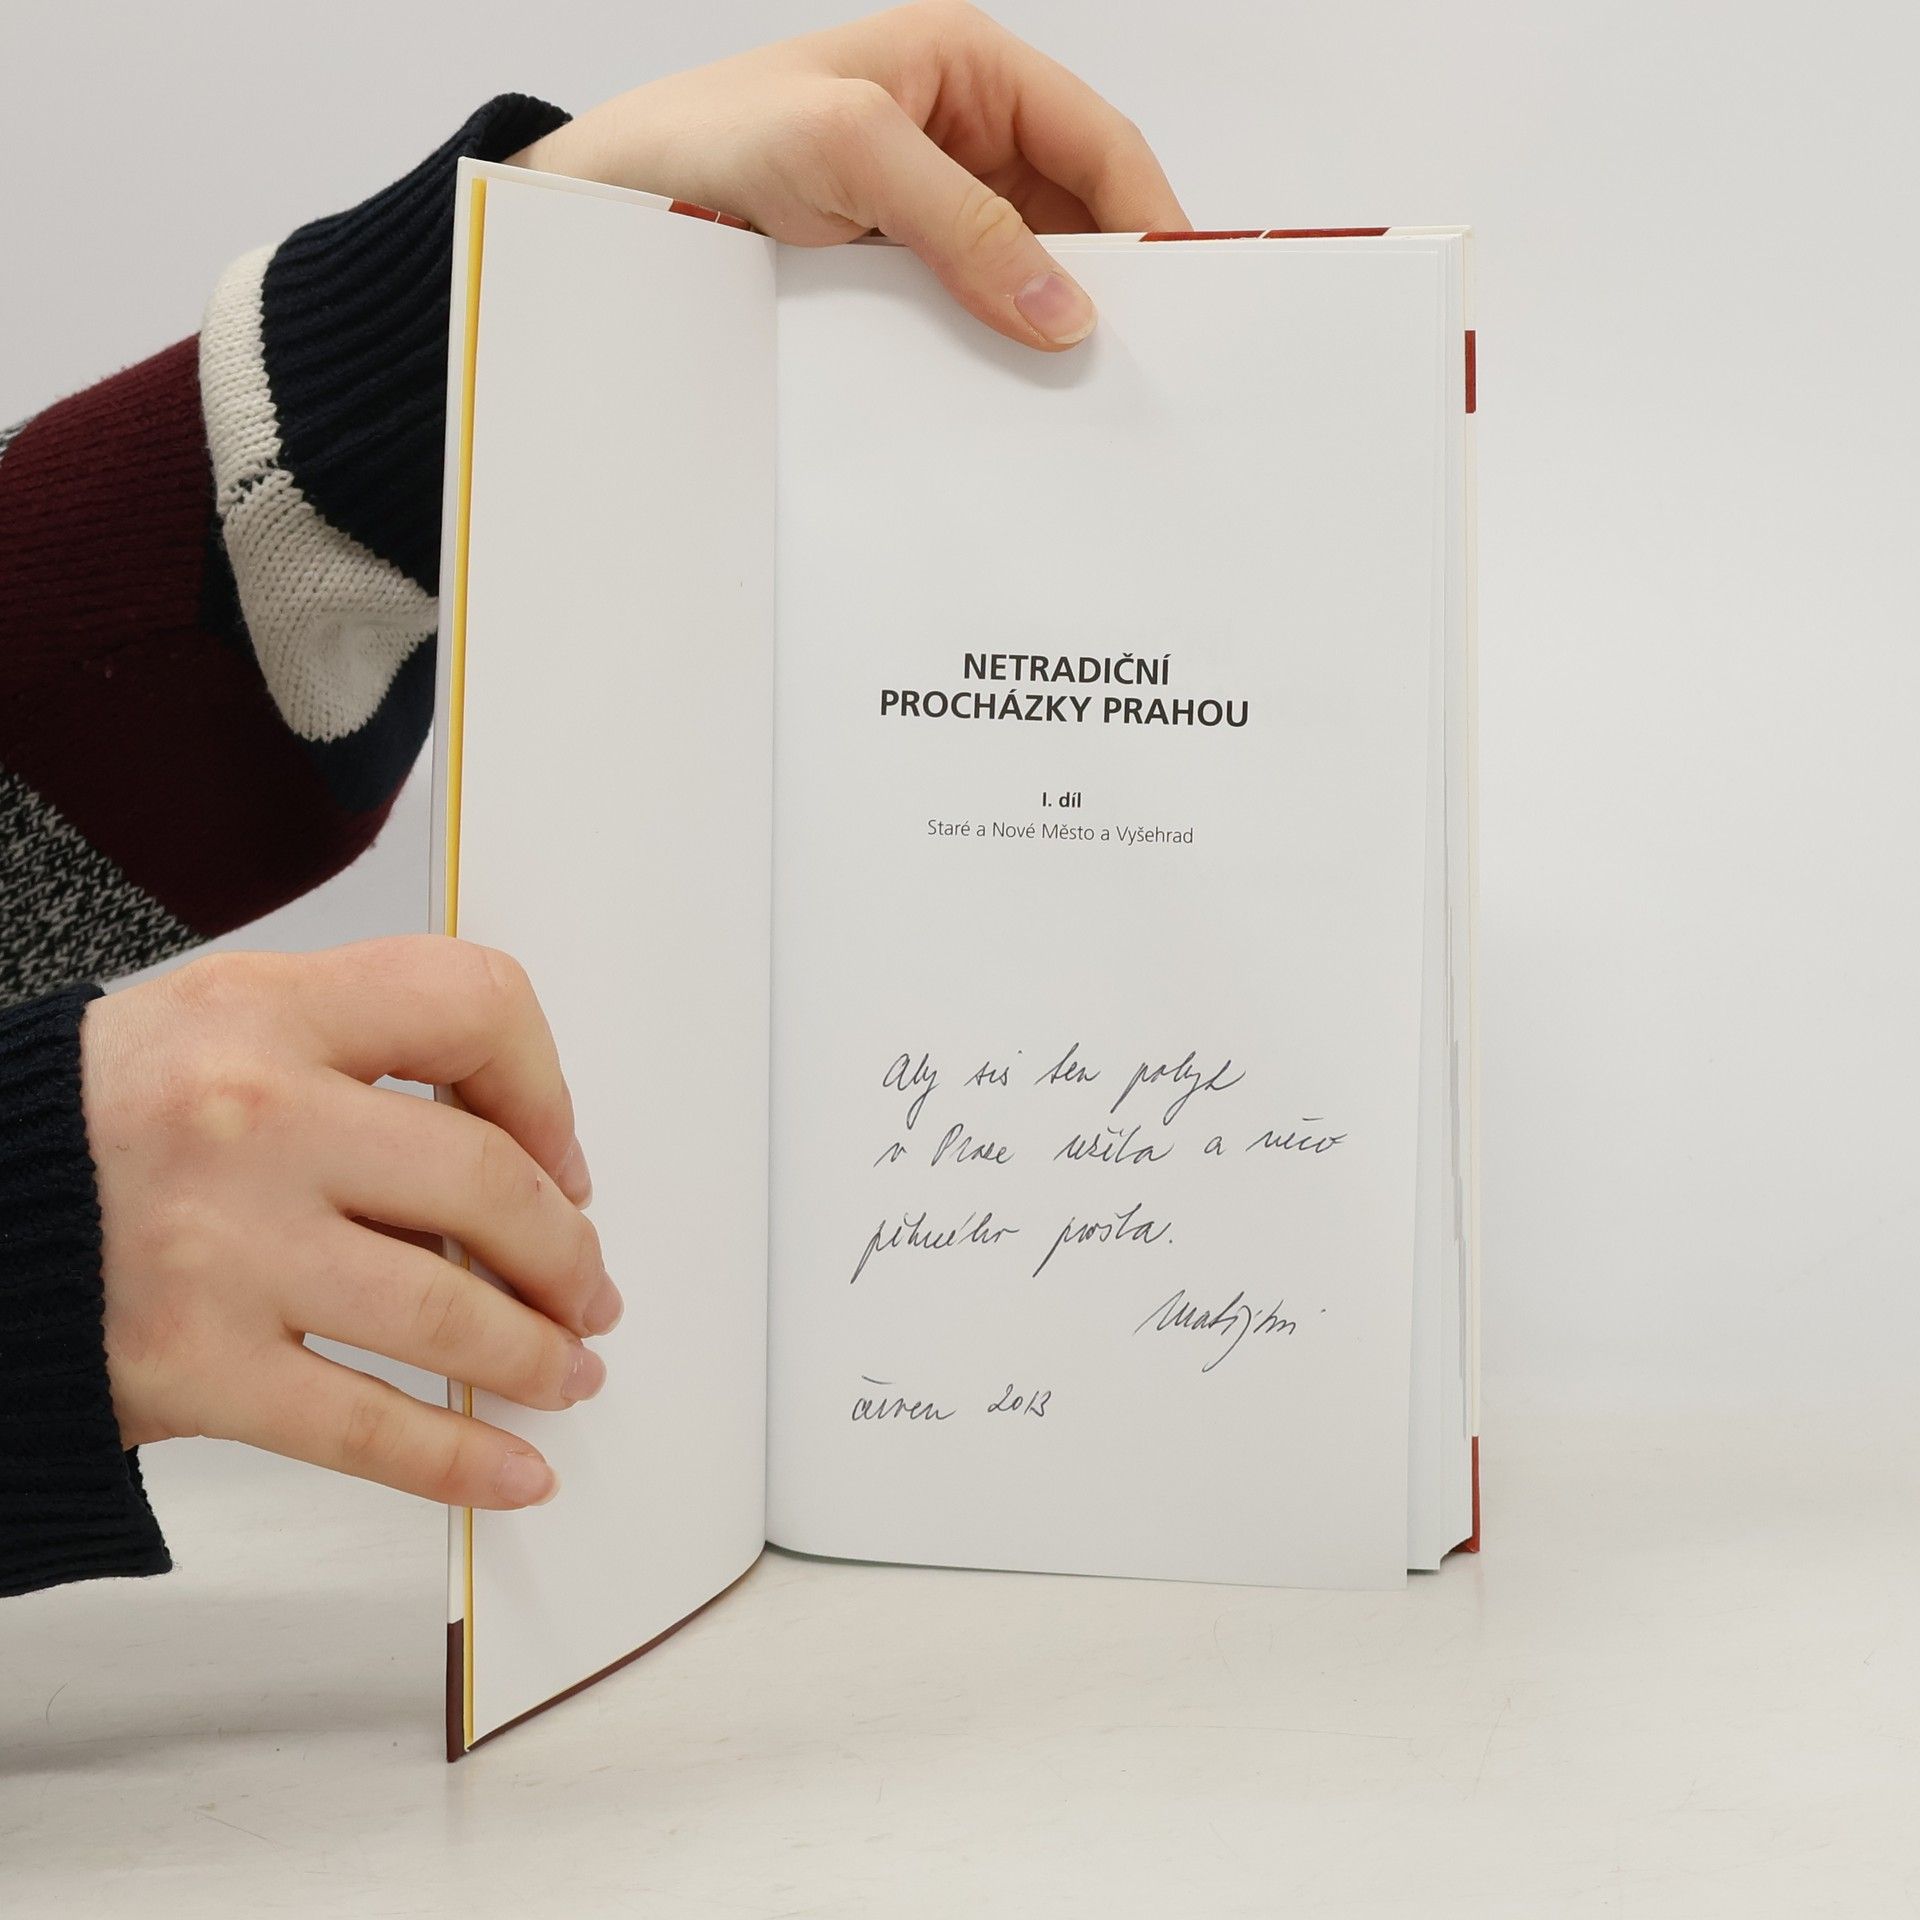 NETRADIČNÍ
PROCHÁZKY PRAHOU
I. díl
Staré a Nové Město a Vyšehrad
Aby sis ten pobyt
v Praze užila a něco
pěkného prošla.
červen 2013